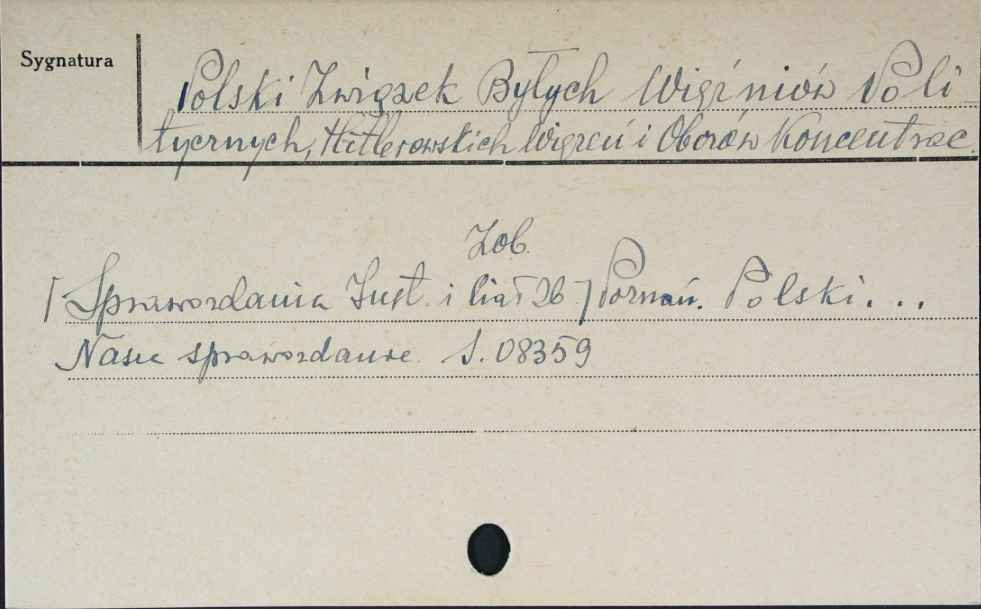 Sygnatura
Polski Związek Byłych Więźniów Poli
tycznych, Hitlerowskich Więzeń i Obozów Koncentrac.
Zob.
[Sprawozdania Inst. i Ciał 26] Poznań. Polski...
Nasze sprawozdanie. S. 08359